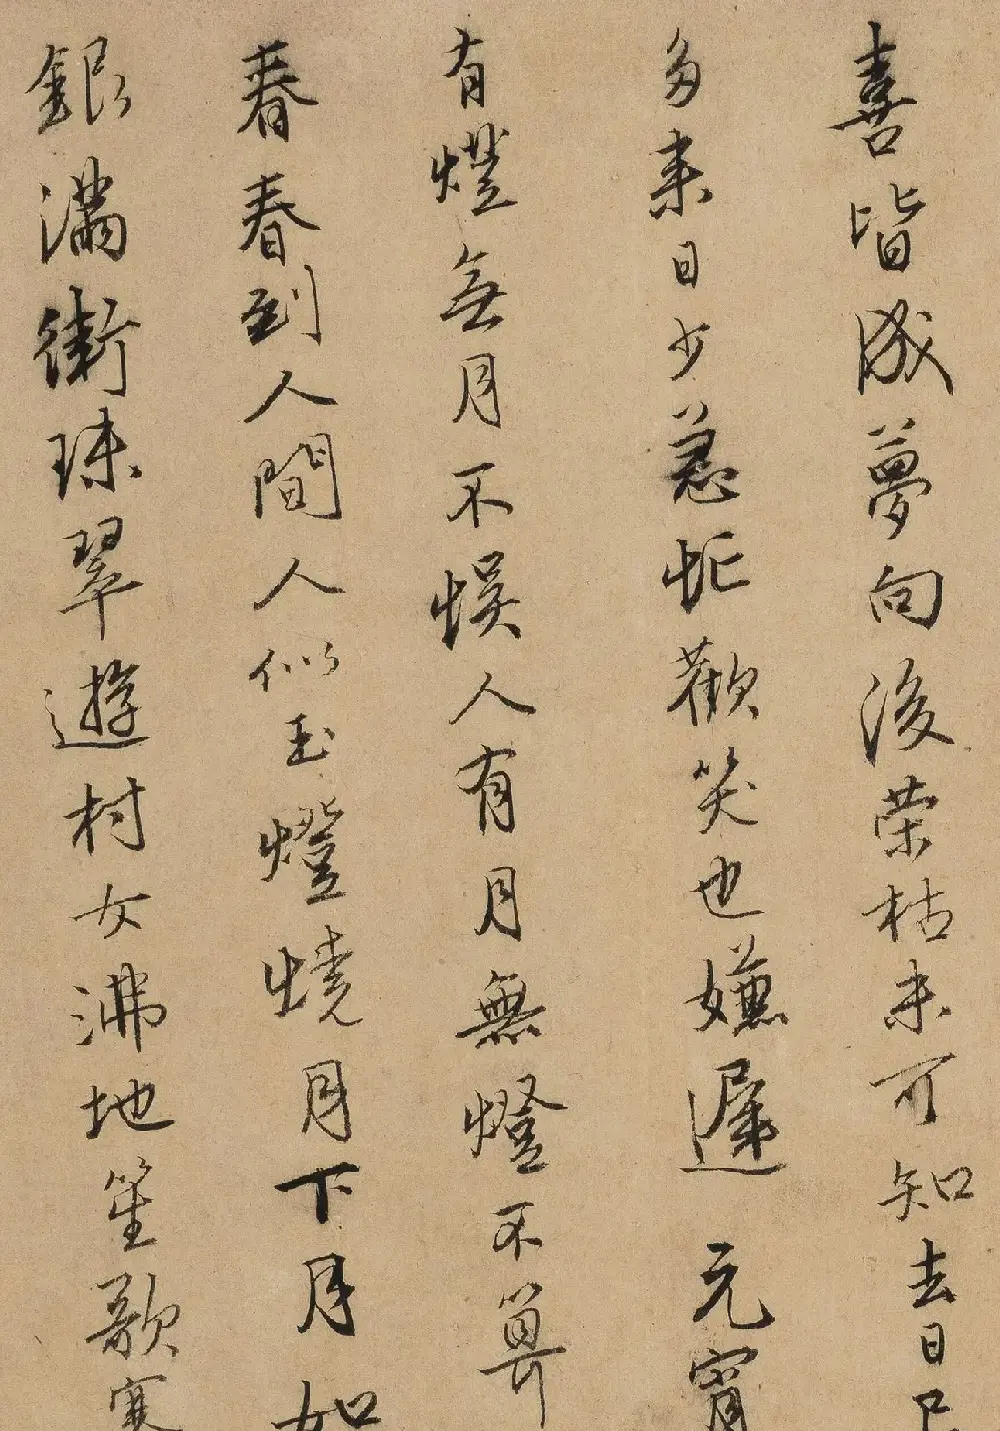 喜皆成夢向後荣枯未可知去日已
多来日少急忙歡笑也嫌遲 元宵
有燈無月不悞人有月無燈不算
春春到人間人似玉燈燒月下月如
銀滿街珠翠遊村女沸地笙歌賽